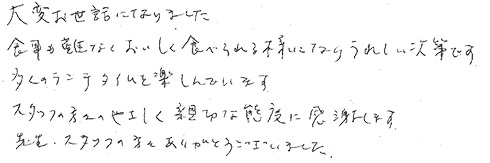 大変お世話になりました
食事も難なくおいしく食べられる様になりうれしい次第です
多くのランチタイムを楽しんでいます
スタッフの方々のやさしく親切な態度に感謝します
先生、スタッフの方々ありがとうございました。